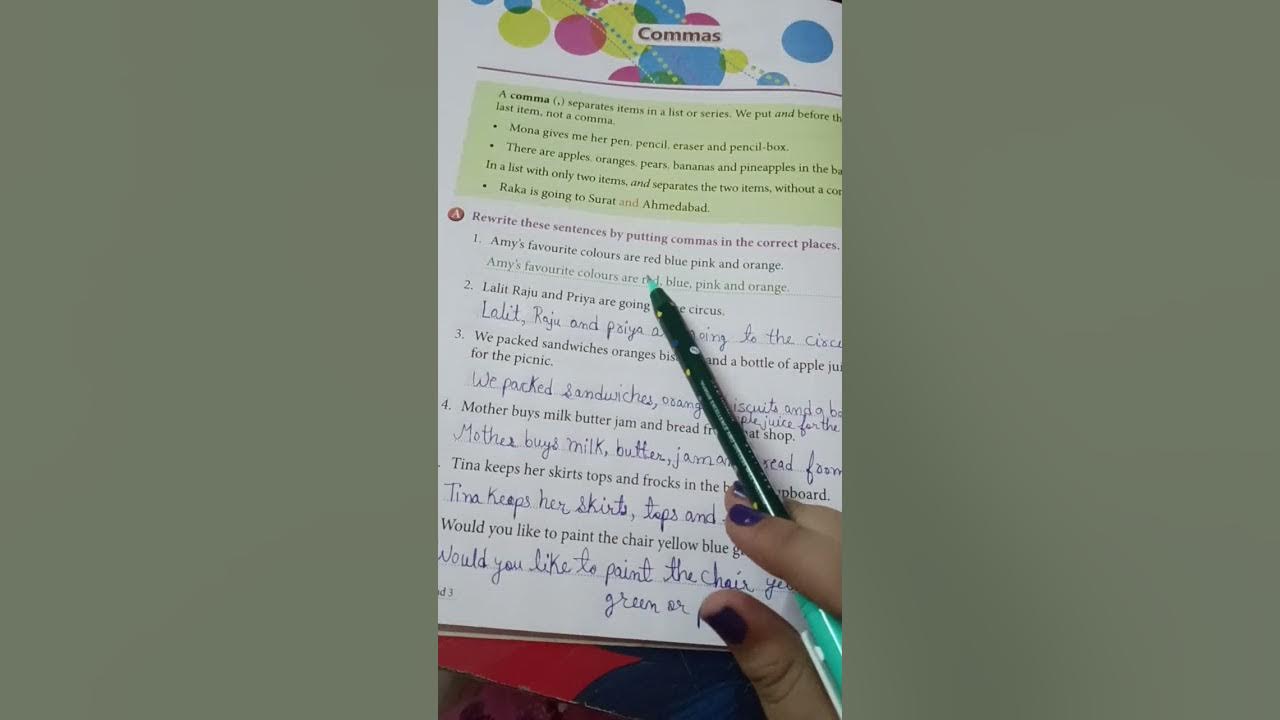 Commas
A comma (,) separates items in a list or series. We put and before
last item, not a comma.
• Mona gives me her pen, pencil, eraser and pencil-box.
• There are apples, oranges, pears, bananas and pineapples in the
In a list with only two items, and separates the two items, without a
• Raka is going to Surat and Ahmedabad.
A Rewrite these sentences by putting commas in the correct places.
1. Amy's favourite colours are red blue pink and orange.
Amy's favourite colours are red, blue, pink and orange.
2. Lalit Raju and Priya are going circus.
Lalit, Raju and priya going to the
3. We packed sandwiches oranges and a bottle of apple
for the picnic.
We packed sandwiches, biscuits and a
juice for the
4. Mother buys milk butter jam and bread shop.
Mother buys milk, butter, jam from
Tina keeps her skirts tops and frocks in the
Tina keeps her skirts, tops and
Would you like to paint the chair yellow blue
Would you like to paint the chair
green or
3